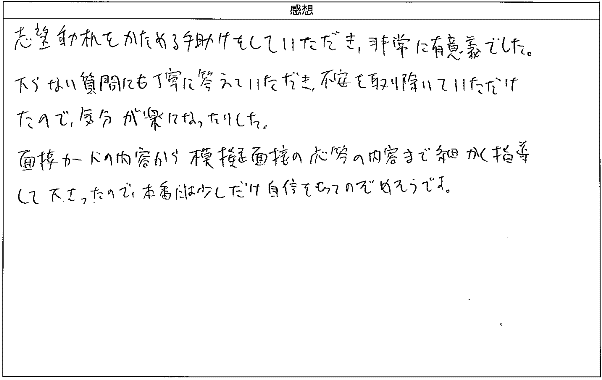 感想
志望動機をかためる手助けをしていただき、非常に有意義でした。
下らない質問にも丁寧に答えていただき、不安を取り除いていただけ
たので、気分が楽になったりした。
面接カードの内容から模擬面接の応答の内容まで細かく指導
して下さったので、本番には少しだけ自信をもってのぞめそうです。